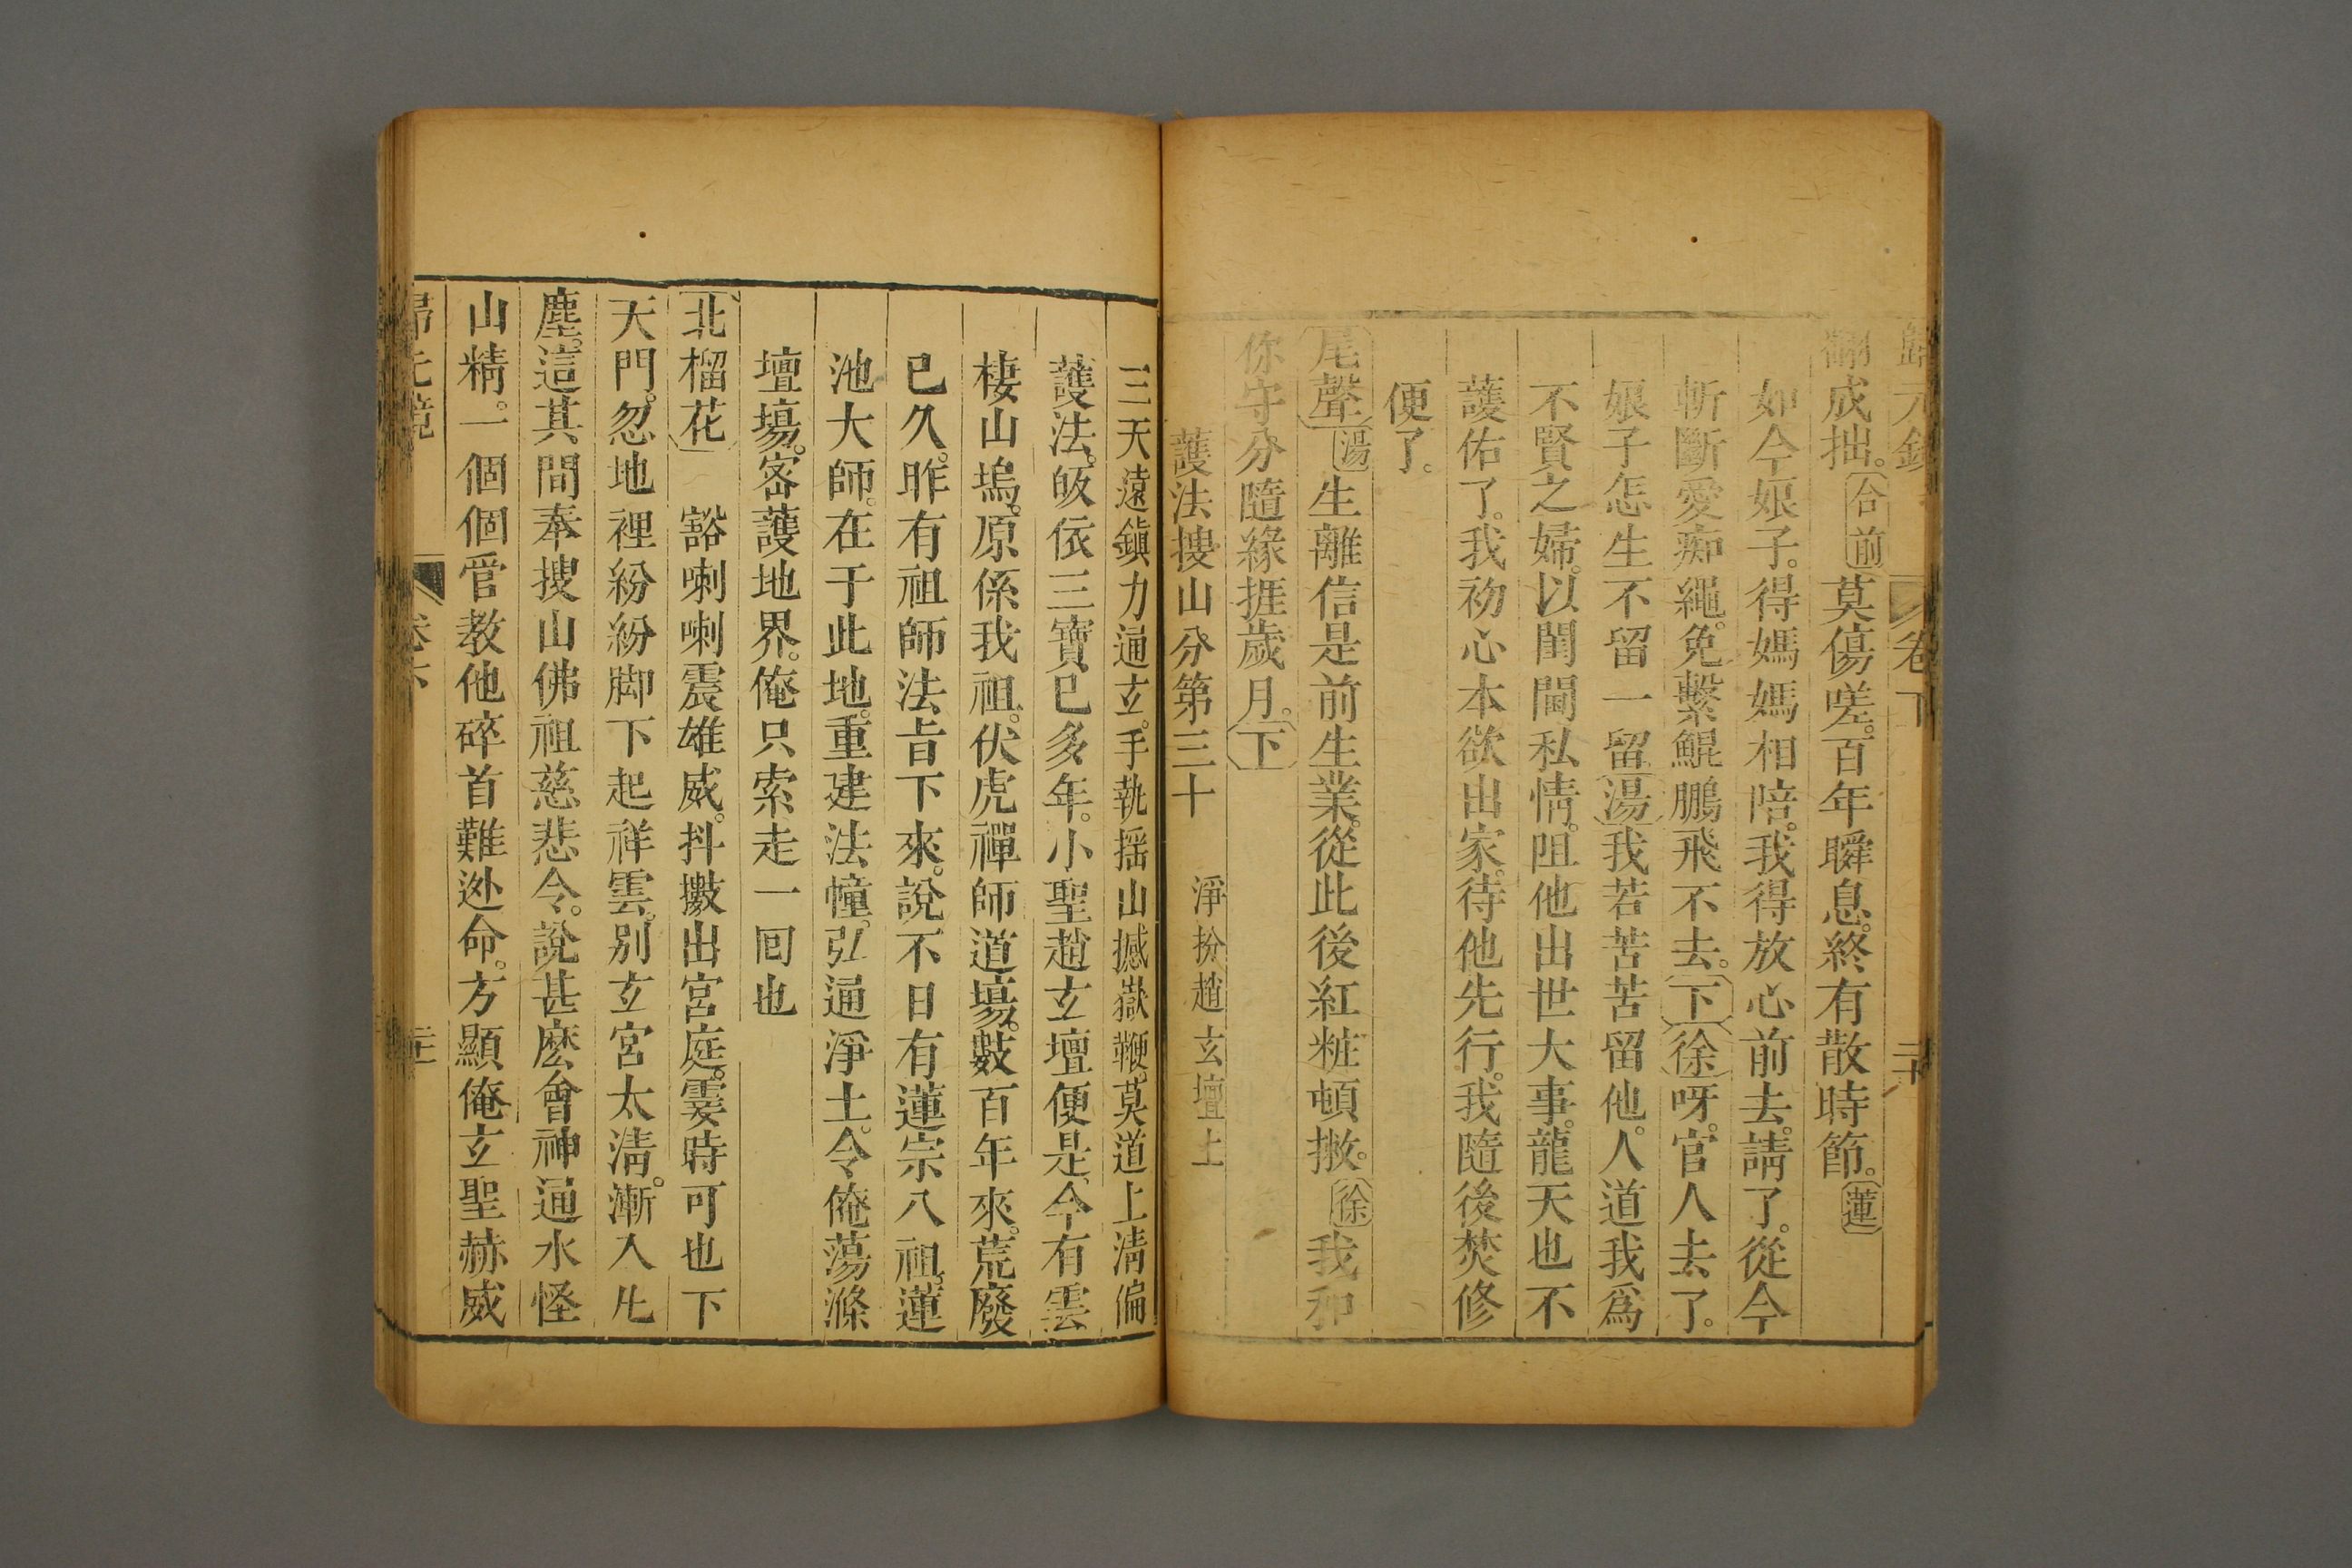 歸元鏡 卷下 二十
翻成拙。合前莫傷嗟。百年瞬息。終有散時節。蓮
如今娘子。得媽媽相陪。我得放心前去。請了。從今
斬斷愛痴繩。免繫鯤鵬飛不去。下徐呀。官人去了。
娘子怎生不留一留湯我若苦苦留他。人道我爲
不賢之婦。以閨閫私情。阻他出世大事。龍天也不
護佑了。我初心本欲出家。待他先行。我隨後焚修
便了。
尾聲湯生離信是前生業。從此後紅粧頓撇。徐我和
你守分隨緣捱歲月。下
護法摟山分第三十 淨扮趙玄壇上
三天遠鎭力通玄。手執搖山撼嶽鞭。莫道上淸偏
護法。皈依三寶已多年。小聖趙玄壇便是。今有雲
棲山塢。原係我祖。伏虎禪師道塲。數百年來。荒廢
已久。昨有祖師法旨下來。說不日有蓮宗八祖。蓮
池大師。在于此地。重建法幢。弘通淨土。令俺蕩滌
壇塲。密護地界。俺只索走一囘也
北榴花 豁喇喇震雄威。抖擻出宮庭。霎時可也下
天門。忽地裡紛紛脚下起祥雲。別玄宮太淸。漸入凡
塵。這其間奉摟山佛祖慈悲令。說甚麽會神通水怪
山精。一個個管教他碎首難迯命。方顯俺玄聖赫威
歸元鏡 卷下